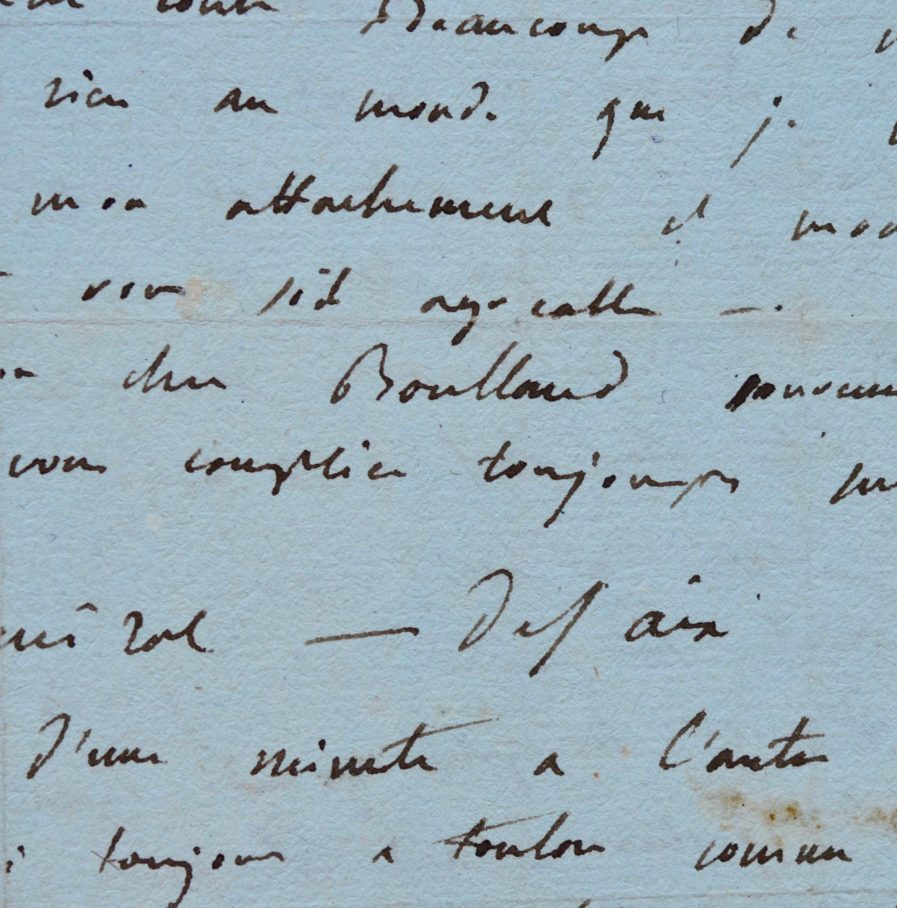 Beaucoup de
rien au monde que je
mon attachement et mon
vous soit agreable —.
cher Boulland souvenez
vous compliez toujours sur
Général — Desaix
d'une minute a l'autre
toujours a toulon comme